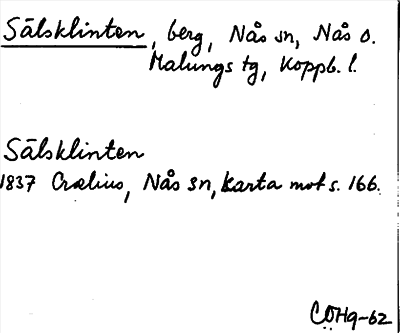 Sälsklinten, berg, Nås sn, Nås o.
Malungs tg, Koppb. l.
Sälsklinten
1837 Crælius, Nås sn, karta mot s. 166.
CÖHq-62